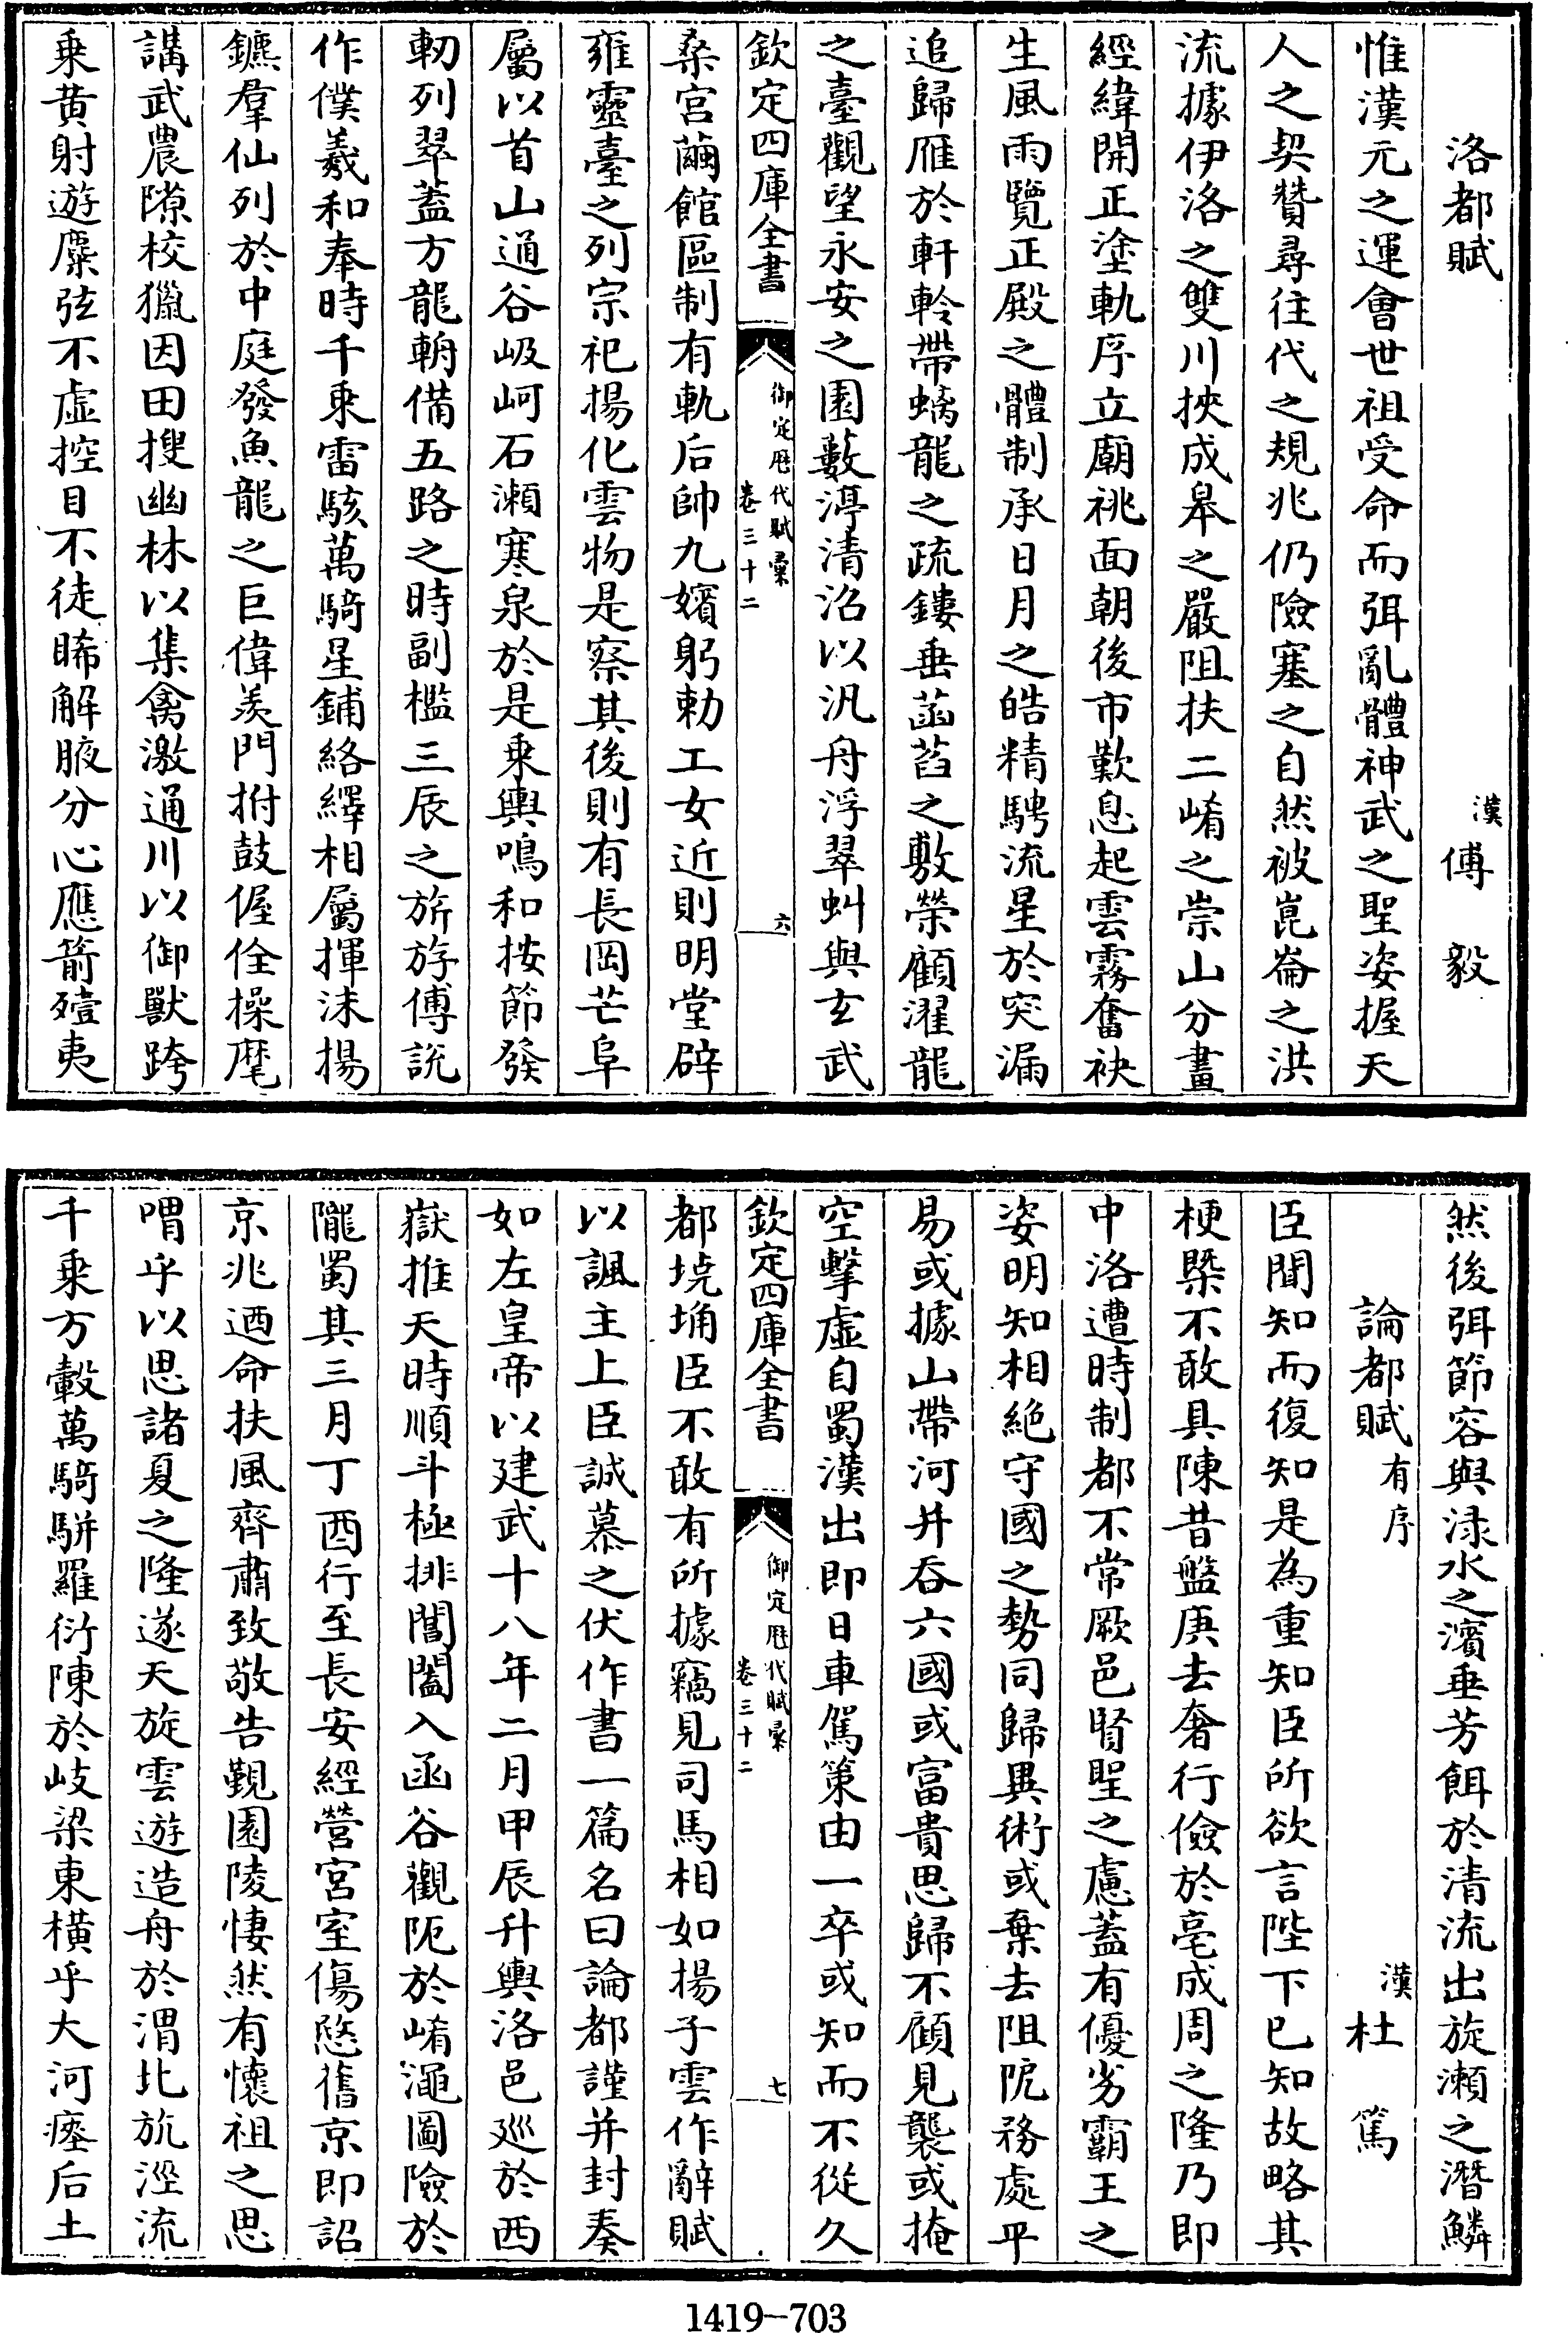 洛都賦
漢傅毅
惟漢元之運會世祖受命而弭亂體神武之聖姿握天
人之契贊尋往代之規兆仍險塞之自然被崑崙之洪
流據伊洛之雙川挾成皋之嚴阻扶二崤之崇山分畫
經緯開正塗軌序立廟祧面朝後市歎息起雲霧奮袂
生風雨覽正殿之體制承日月之皓精騁流星於突漏
追歸雁於軒軨帶螭龍之疏鏤垂菡萏之敷榮顧濯龍
之臺觀望永安之園藪渟清沼以汎舟浮翠虯與玄武
欽定四庫全書
御定歷代賦彙
卷三十二
六
桑宮繭館區制有軌后帥九嬪躬勅工女近則明堂辟
雍靈臺之列宗祀揚化雲物是察其後則有長岡芒阜
屬以首山通谷岋岢石瀨寒泉於是乘輿鳴和按節發
軔列翠蓋方龍輈備五路之時副檻三辰之旂斿傅說
作僕羲和奉時千乘雷駭萬騎星鋪絡繹相屬揮沫揚
鑣羣仙列於中庭發魚龍之巨偉羨門拊鼓偓佺操麾
講武農隙校獵因田搜幽林以集禽激通川以御獸跨
乘黃射遊麋弦不虛控目不徒睎解腋分心應箭殪夷
然後弭節容與淥水之濱垂芳餌於清流出旋瀨之潛鱗
論都賦有序
漢杜篤
臣聞知而復知是為重知臣所欲言陛下已知故略其
梗槩不敢具陳昔盤庚去奢行儉於亳成周之隆乃即
中洛遭時制都不常厥邑賢聖之慮蓋有優劣霸王之
姿明知相絶守國之勢同歸異術或棄去阻阨務處平
易或據山帶河并吞六國或富貴思歸不顧見襲或掩
空擊虛自蜀漢出即日車駕策由一卒或知而不從久
欽定四庫全書
御定歷代賦彙
卷三十二
七
都墝埆臣不敢有所據竊見司馬相如揚子雲作辭賦
以諷主上臣誠慕之伏作書一篇名曰論都謹并封奏
如左皇帝以建武十八年二月甲辰升輿洛邑廵於西
嶽推天時順斗極排閶闔入函谷觀阨於崤澠圖險於
隴蜀其三月丁酉行至長安經營宮室傷愍舊京即詔
京兆迺命扶風齊肅致敬告覲園陵悽然有懷祖之思
喟乎以思諸夏之隆遂天旋雲遊造舟於渭北斻涇流
千乘方轂萬騎駢羅衍陳於岐梁東橫乎大河瘞后土
1419-703